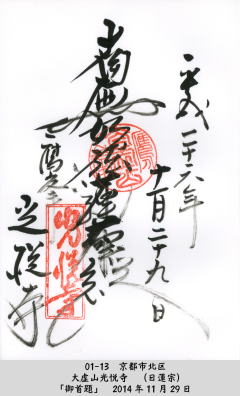 平成二十六年
十一月二十九日
南無妙法蓮華経
光悦寺
01-13 京都市北区
大虚山光悦寺 (日蓮宗)
「御首題」 2014年11月29日